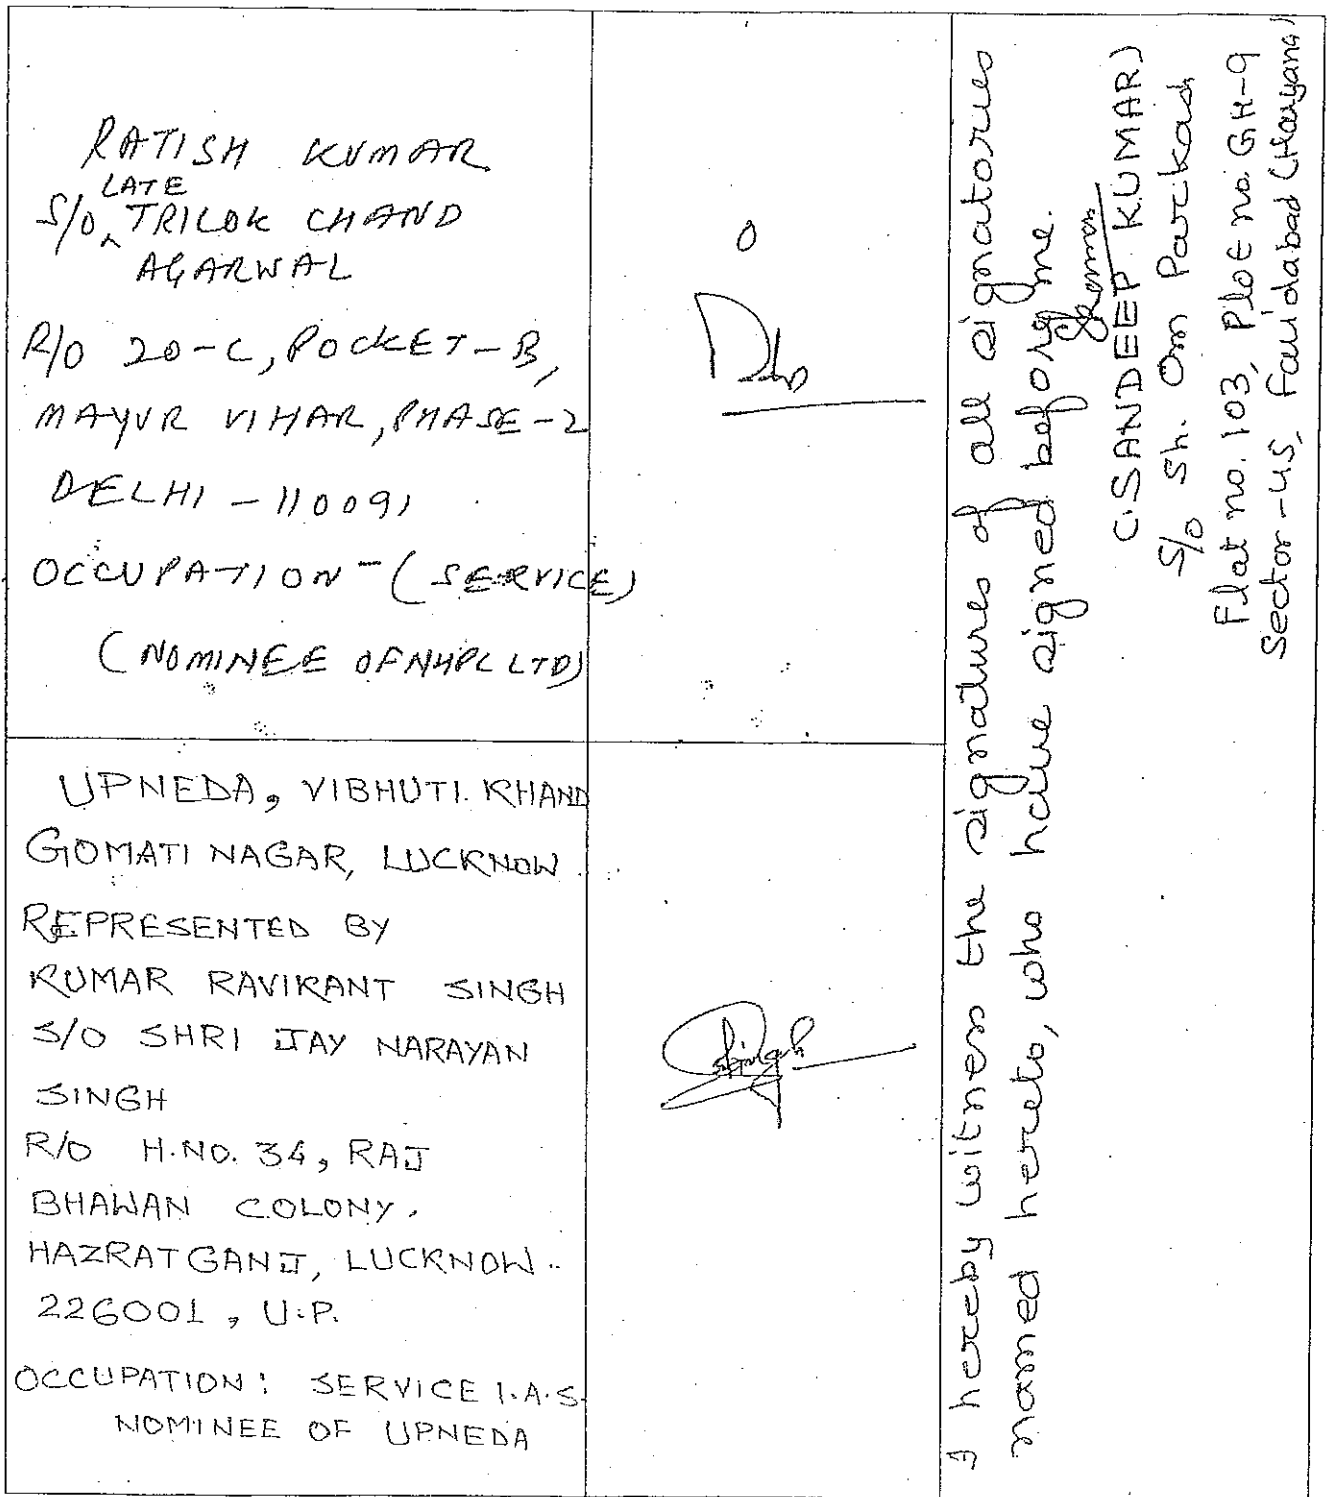 RATISH KUMAR
LATE
S/O TRILOK CHAND
AGARWAL
R/O 20-C, POCKET-B,
MAYUR VIHAR, PHASE-2
DELHI - 110091
OCCUPATION - (SERVICE)
(NOMINEE OF NHPC LTD)
UPNEDA, VIBHUTI KHAND
GOMATI NAGAR, LUCKNOW
REPRESENTED BY
KUMAR RAVIKANT SINGH
S/O SHRI JAY NARAYAN
SINGH
R/O H.NO. 34, RAJ
BHAWAN COLONY,
HAZRATGANJ, LUCKNOW.
226001, U.P.
OCCUPATION: SERVICE I.A.S.
NOMINEE OF UPNEDA
I hereby witness the signatures of all signatories
named hereto, who have signed before me.
(SANDEEP KUMAR)
S/o Sh. Om Parkash
Flat no. 103, Plot no. GH-9
Sector-45, Faridabad (Haryana)